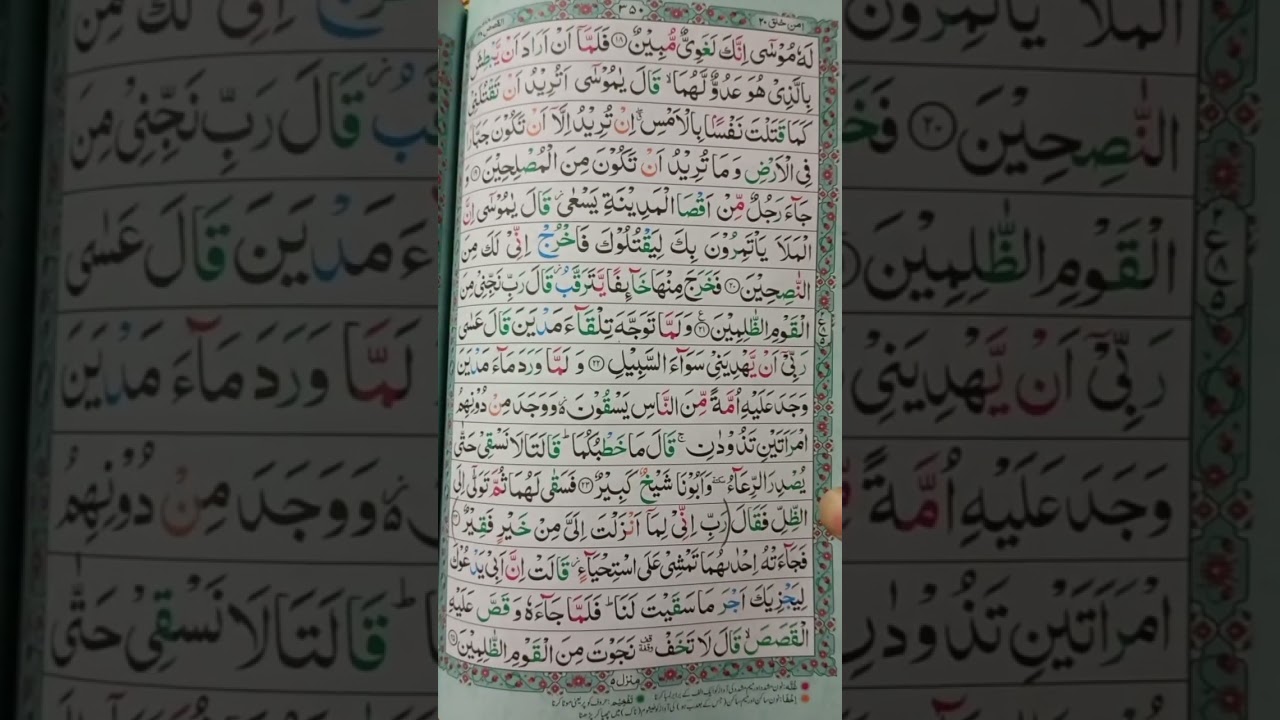 القصص ٢٨
٣٥٠
امن خلق ٢٠
لَهٗ مُوْسٰۤى اِنَّكَ لَغَوِیٌّ مُّبِیْنٌ ۝۱۸ فَلَمَّاۤ اَنْ اَرَادَ اَنْ یَّبْطِشَ
بِالَّذِیْ هُوَ عَدُوٌّ لَّهُمَا ۙ قَالَ یٰمُوْسٰۤى اَتُرِیْدُ اَنْ تَقْتُلَنِیْ
كَمَا قَتَلْتَ نَفْسًۢا بِالْاَمْسِ ۖ اِنْ تُرِیْدُ اِلَّاۤ اَنْ تَكُوْنَ جَبَّارًا
فِی الْاَرْضِ وَ مَا تُرِیْدُ اَنْ تَكُوْنَ مِنَ الْمُصْلِحِیْنَ ۝۱۹ وَ
جَآءَ رَجُلٌ مِّنْ اَقْصَا الْمَدِیْنَةِ یَسْعٰى ؗ قَالَ یٰمُوْسٰۤى اِنَّ
الْمَلَاَ یَاْتَمِرُوْنَ بِكَ لِیَقْتُلُوْكَ فَاخْرُجْ اِنِّیْ لَكَ مِنَ
النّٰصِحِیْنَ ۝۲۰ فَخَرَجَ مِنْهَا خَآىِٕفًا یَّتَرَقَّبُ ؗ قَالَ رَبِّ نَجِّنِیْ مِنَ
الْقَوْمِ الظّٰلِمِیْنَ ۝۲۱ وَ لَمَّا تَوَجَّهَ تِلْقَآءَ مَدْیَنَ قَالَ عَسٰى
رَبِّیْۤ اَنْ یَّهْدِیَنِیْ سَوَآءَ السَّبِیْلِ ۝۲۲ وَ لَمَّا وَرَدَ مَآءَ مَدْیَنَ
وَجَدَ عَلَیْهِ اُمَّةً مِّنَ النَّاسِ یَسْقُوْنَ ؗ۬ وَ وَجَدَ مِنْ دُوْنِهِمُ
امْرَاَتَیْنِ تَذُوْدٰنِ ۚ قَالَ مَا خَطْبُكُمَا ؕ قَالَتَا لَا نَسْقِیْ حَتّٰى
یُصْدِرَ الرِّعَآءُ ٚ وَ اَبُوْنَا شَیْخٌ كَبِیْرٌ ۝۲۳ فَسَقٰى لَهُمَا ثُمَّ تَوَلّٰۤى اِلَى
الظِّلِّ فَقَالَ (رَبِّ اِنِّیْ لِمَاۤ اَنْزَلْتَ اِلَیَّ مِنْ خَیْرٍ فَقِیْرٌ) ۝۲۴
فَجَآءَتْهُ اِحْدٰىهُمَا تَمْشِیْ عَلَى اسْتِحْیَآءٍ ؗ قَالَتْ اِنَّ اَبِیْ یَدْعُوْكَ
لِیَجْزِیَكَ اَجْرَ مَا سَقَیْتَ لَنَا ؕ فَلَمَّا جَآءَهٗ وَ قَصَّ عَلَیْهِ
الْقَصَصَ ۙ قَالَ لَا تَخَفْ ۥ۫ نَجَوْتَ مِنَ الْقَوْمِ الظّٰلِمِیْنَ ۝۲۵
منزل ۵